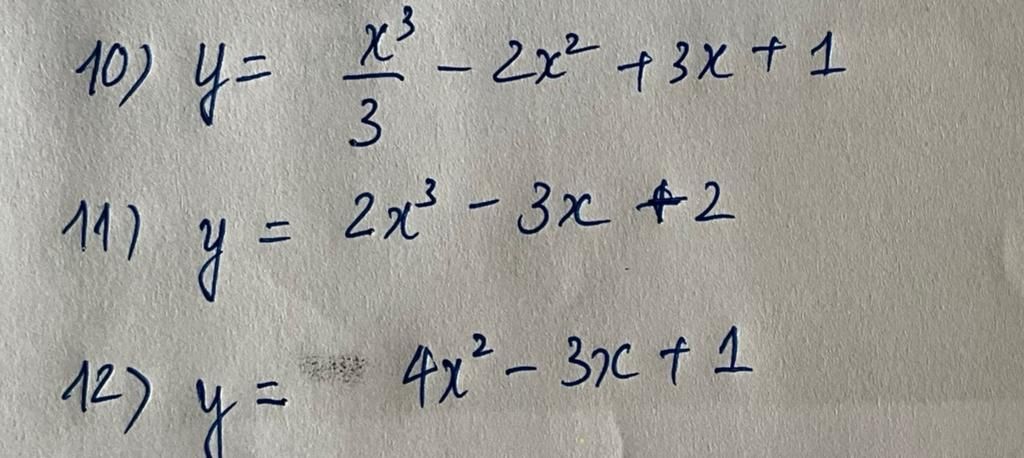 10) y = x³/3 - 2x² + 3x + 1
11) y = 2x³ - 3x + 2
12) y = 4x² - 3x + 1